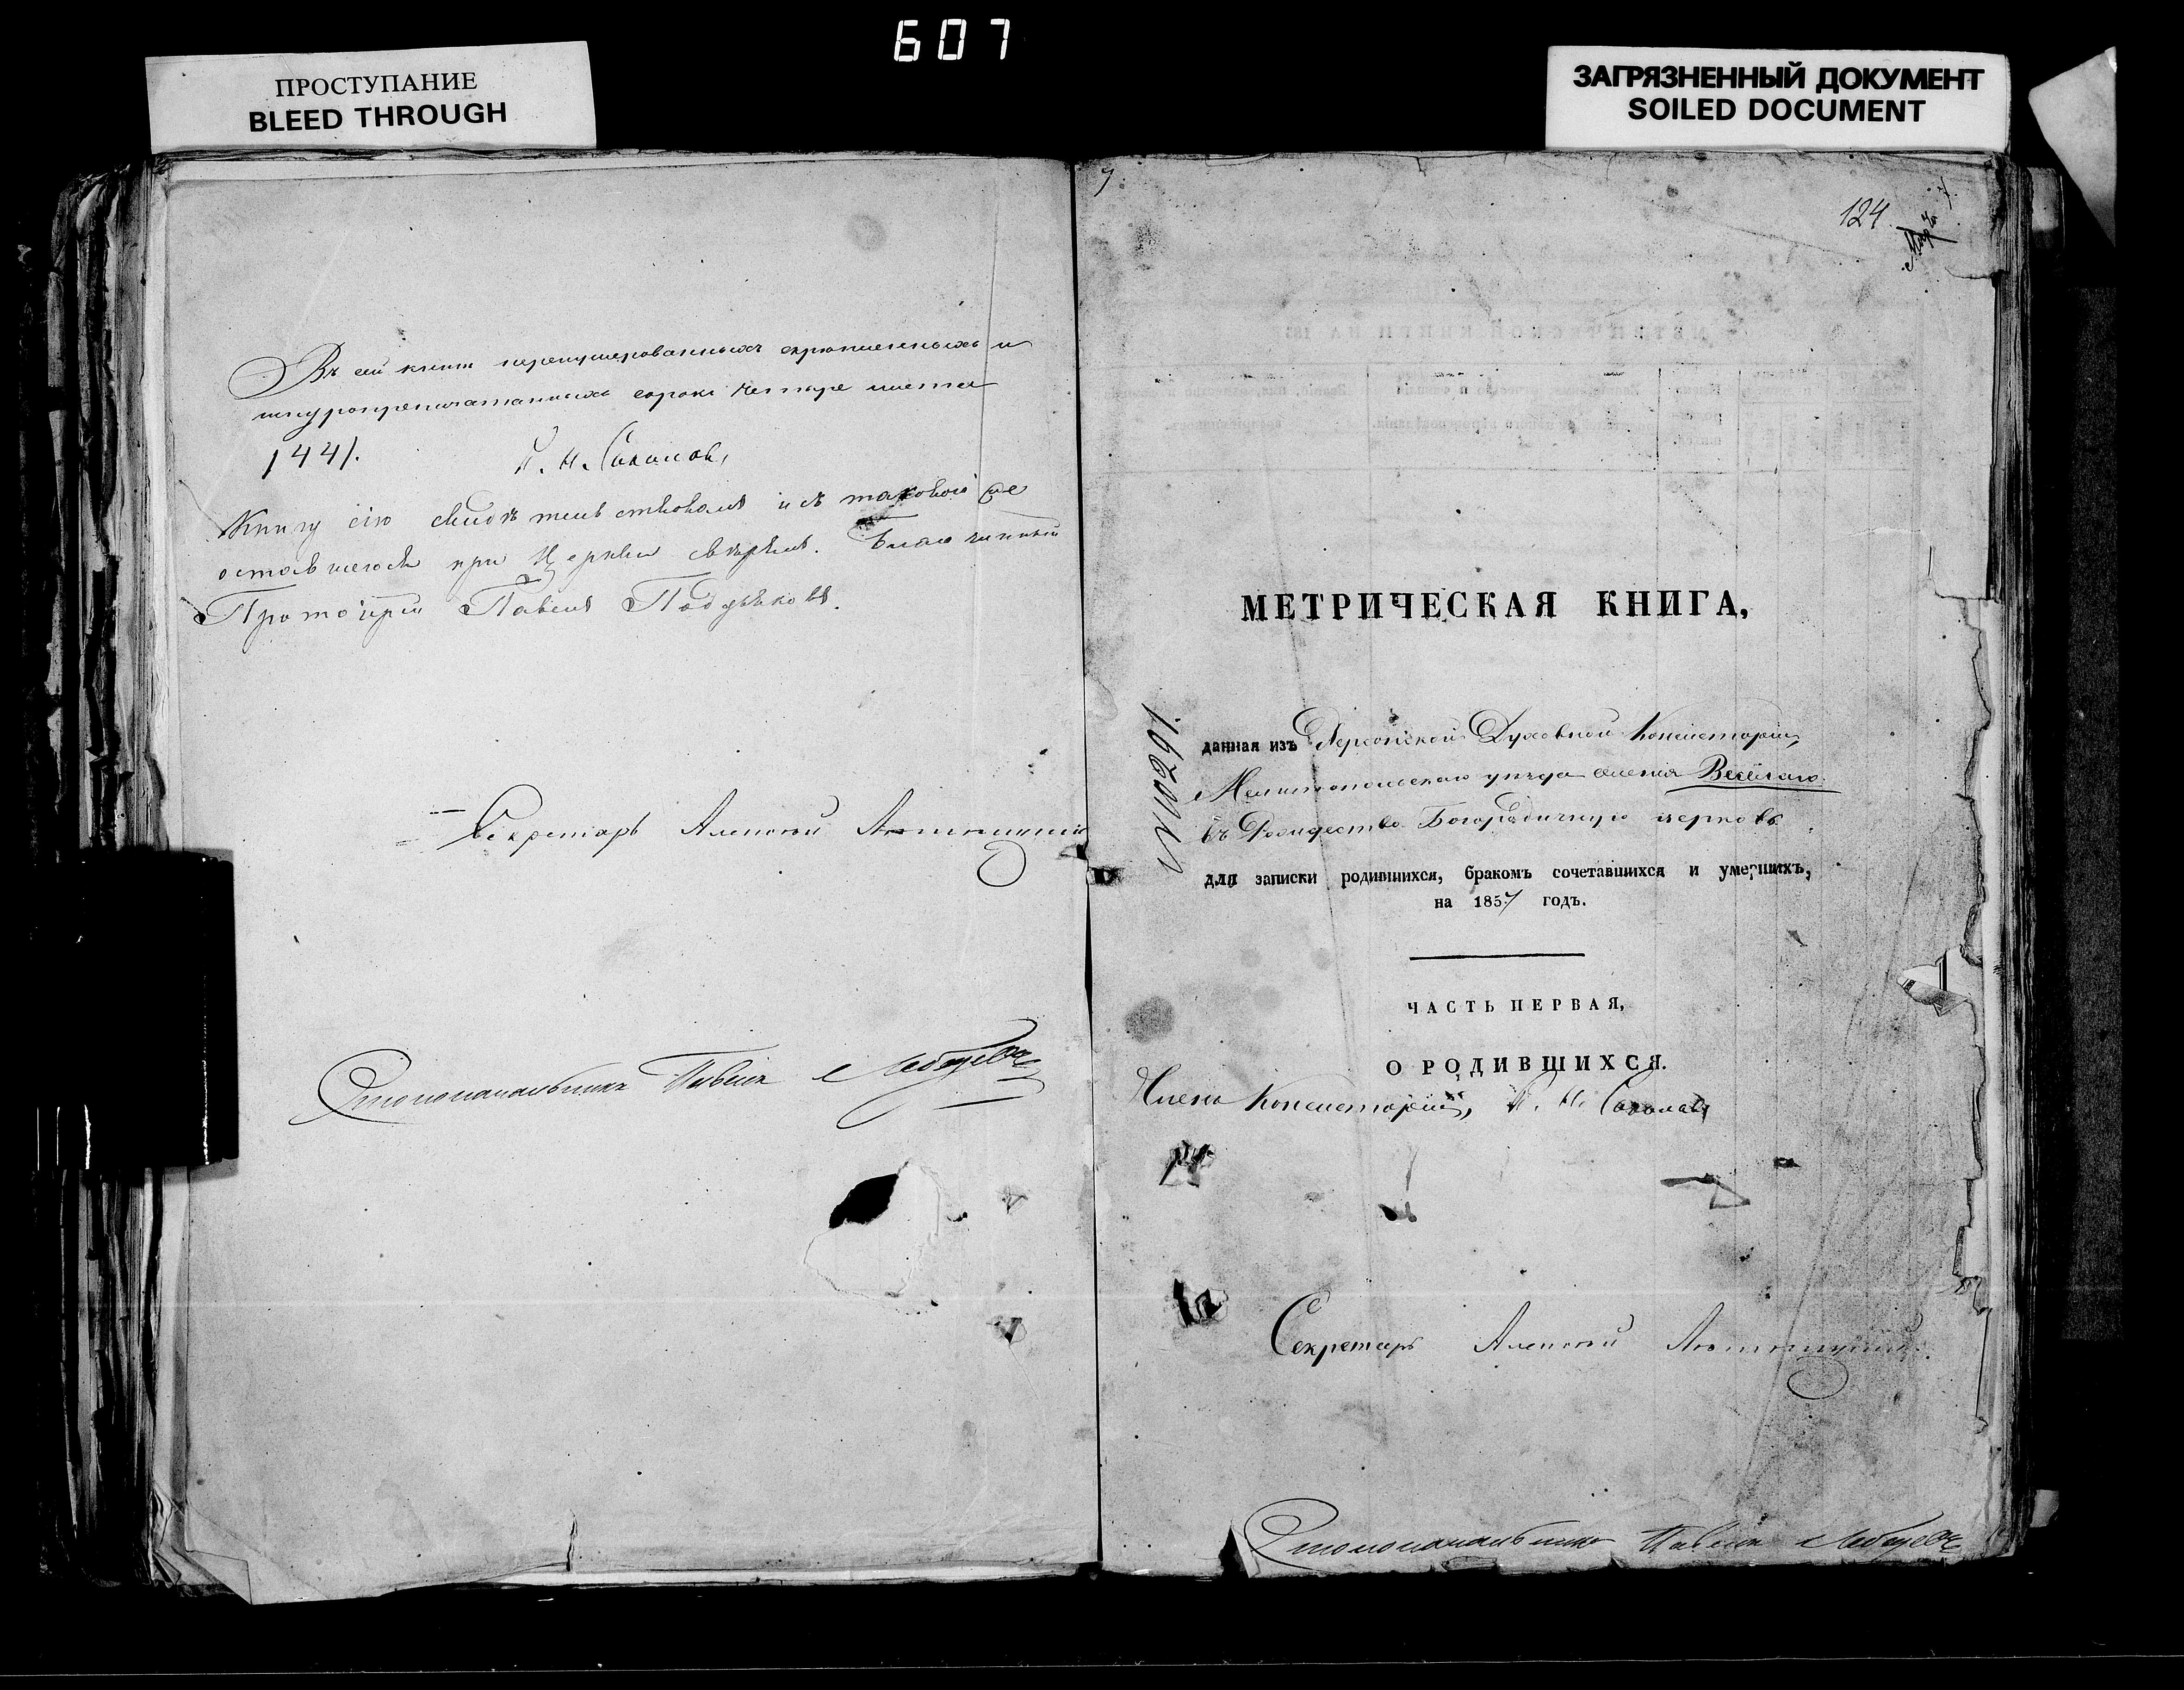 607
ПРОСТУПАНИЕ
BLEED THROUGH
ЗАГРЯЗНЕННЫЙ ДОКУМЕНТ
SOILED DOCUMENT
Въ сей книгѣ перенумерованныхъ скрѣпленныхъ и
шнуропрепечатанныхъ сорокъ четыре листа
/44/.
Книгу сію свидѣтельствовалъ и съ таковой же
оставшеюся при Церкви свѣрялъ. Благочинный
Протоіерей Павелъ
Секретарь Алексѣй
Столоначальникъ Павелъ Лебедевъ
124
МЕТРИЧЕСКАЯ КНИГА,
№ 10291.
данная изъ Херсонской Духовной Консисторіи,
Мелитопольскаго уѣзда селенія Веселаго
въ Рождество Богородичную церковь
для записки родившихся, бракомъ сочетавшихся и умершихъ,
на 1857 годъ.
ЧАСТЬ ПЕРВАЯ,
О РОДИВШИХСЯ.
Членъ Консисторіи,
Секретарь Алексѣй
Столоначальникъ Павелъ Лебедевъ